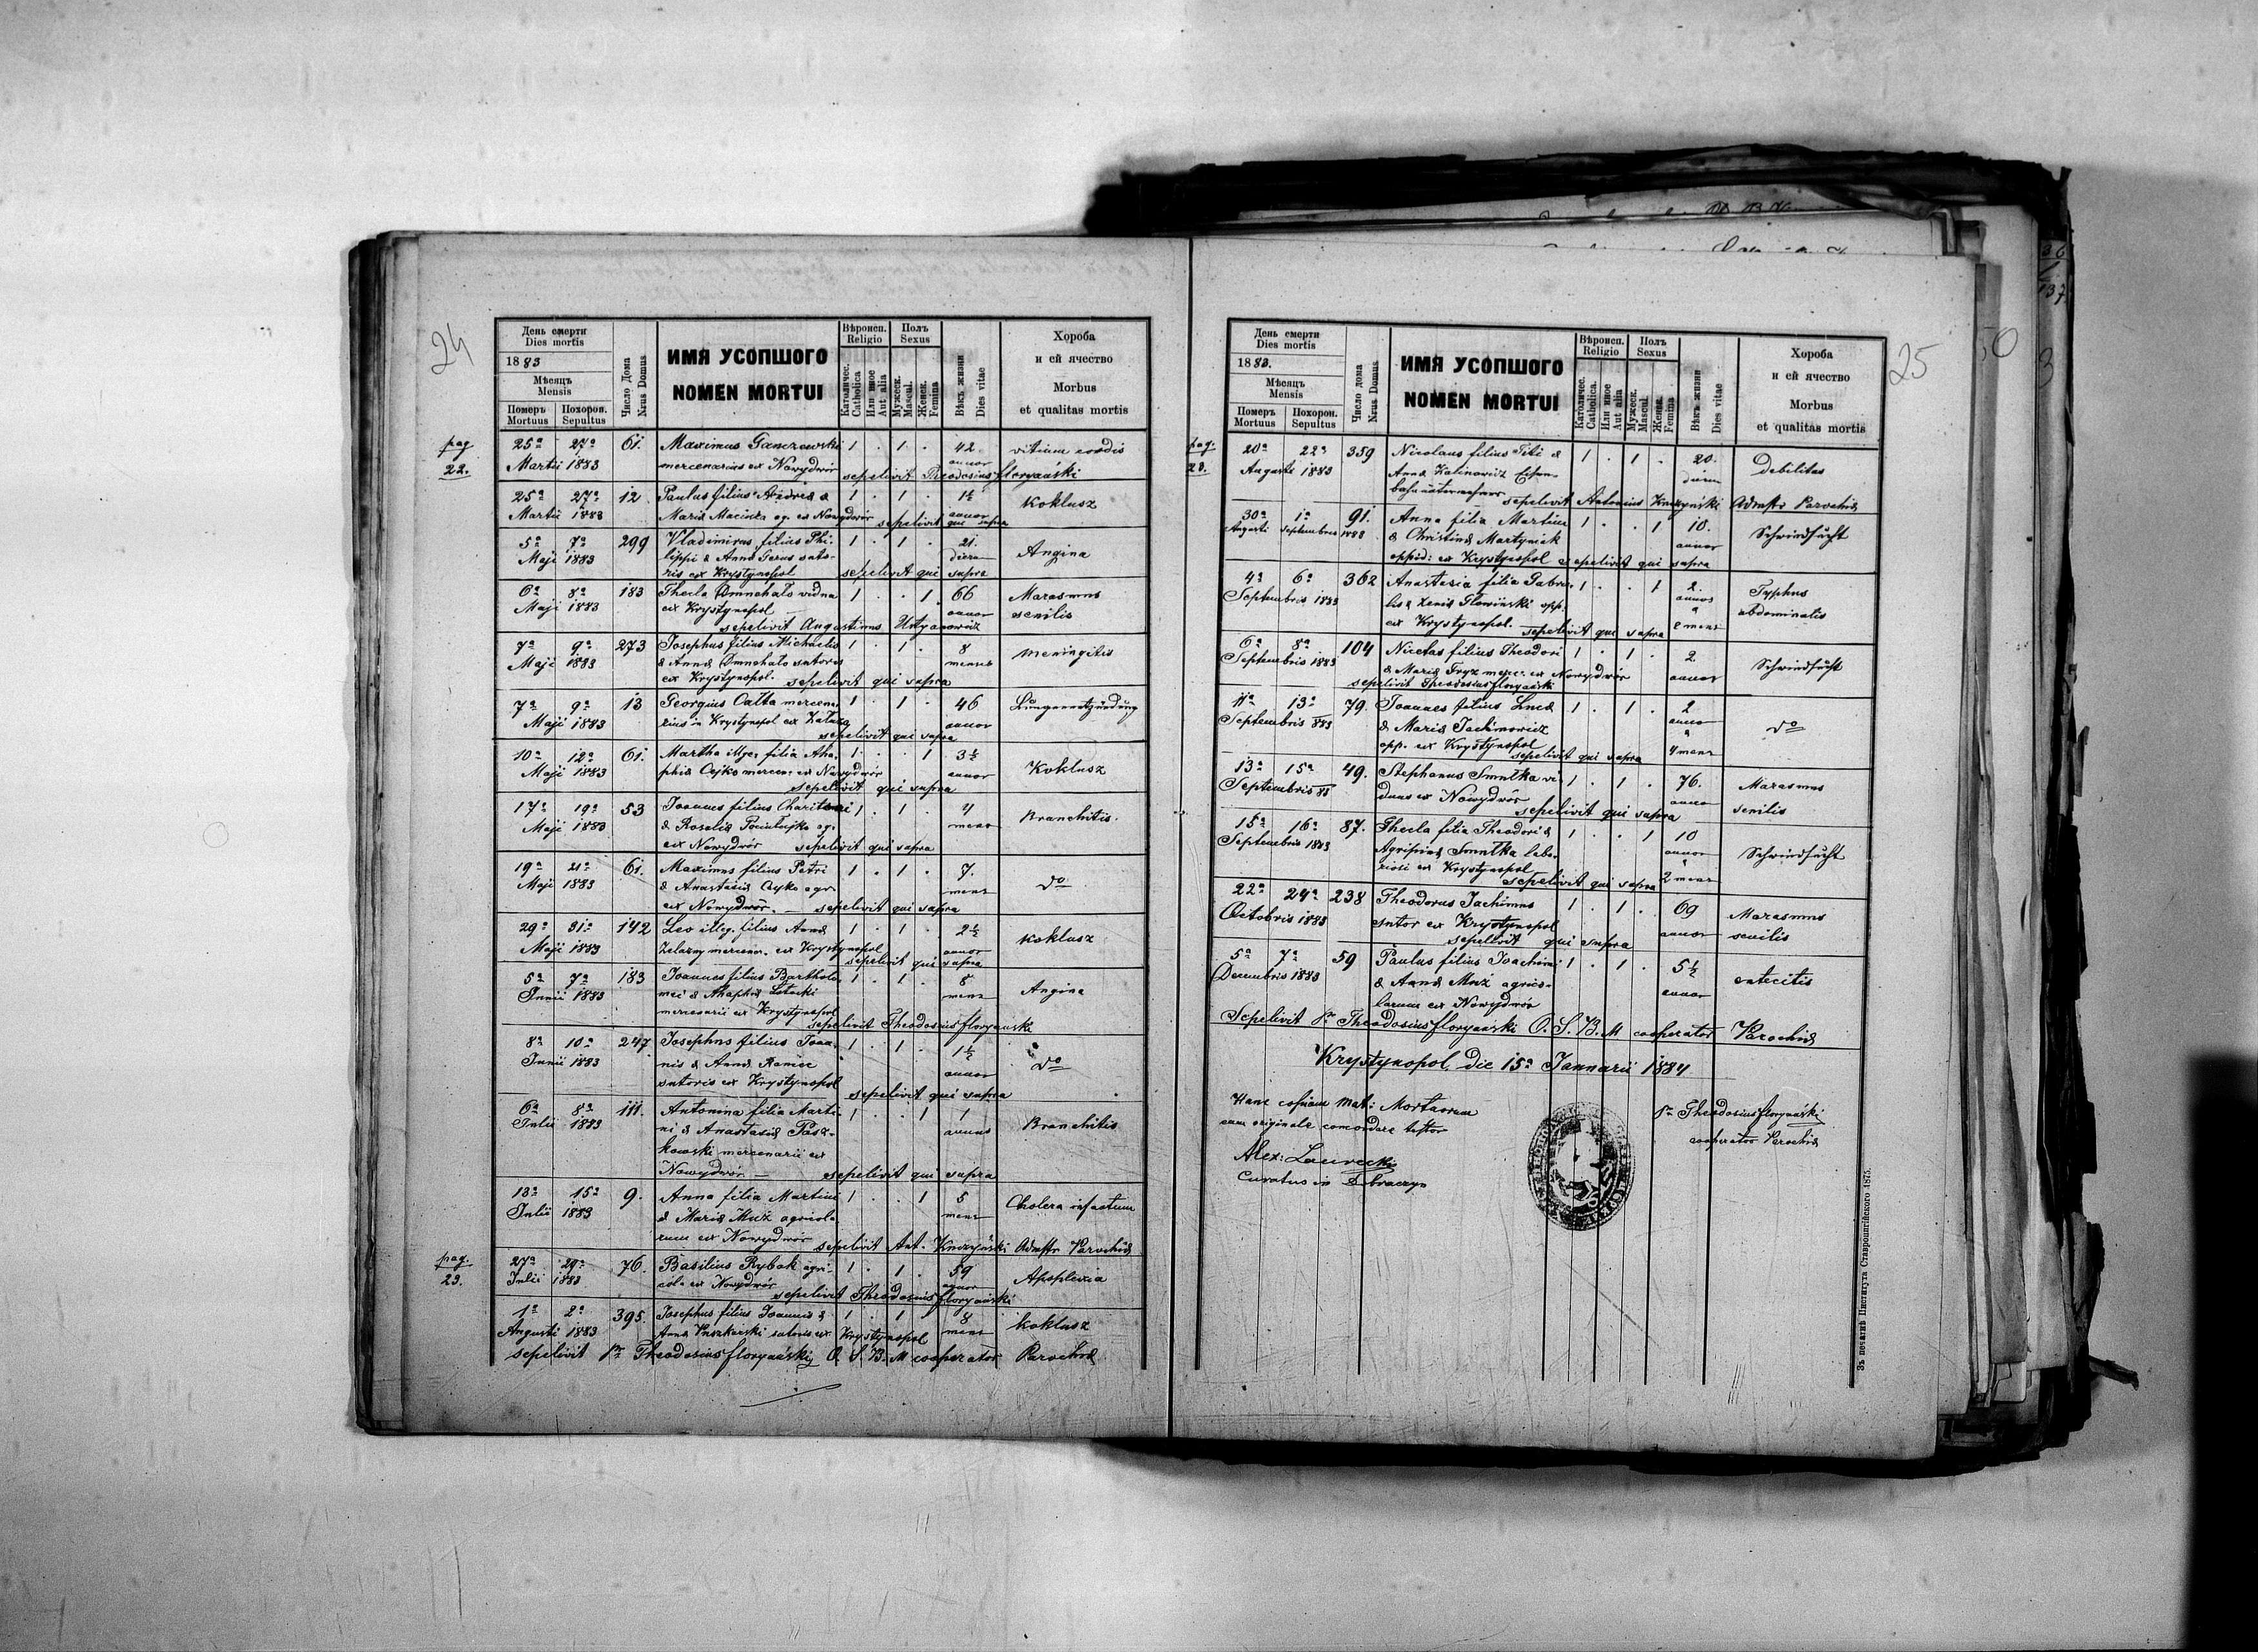 24
День смерти
Dies mortis
1883
Мѣсяць
Mensis
Померъ Похорон.
Mortuus Sepultus
Число Дома
Nrus Domus
ИМЯ УСОПШОГО
NOMEN MORTUI
Вѣроисп.
Religio
Католичес.
Catholica
Или иное
Aut alia
Полъ
Sexus
Мужеск.
Mascul.
Женск.
Femina
Вѣкъ жизни
Dies vitae
Хороба
и ей ячество
Morbus
et qualitas mortis
pag. 22.
25a 27a 61. Maximus Ganczewski 1 . 1 . 42 vitium cordis
Martii 1883 mercenarius ex Nowydwór annor
sepelivit Theodosius Floryański
25a 27a 12 Paulus filius Andreä & 1 . 1 . 1½ Koklusz
Martii 1883 Mariä Maciuka ag. ex Nowydwór annor
sepelivit qui supra
5a 7a 299 Vladimirus filius Phi- 1 . 1 . 21. Angina
Maji 1883 lippi & Annä Gerus suto- dierum
ris ex Krystynopol sepelivit qui supra
6a 8a 183 Thecla Omnchato vidua 1 . . 1 66 Marasmus
Maji 1883 ex Krystynopol annor senilis
sepelivit Augustinus Ustyanowicz
7a 9a 273 Josephus filius Michaelis 1 . 1 . 8 meningitis
Maji 1883 & Annä Omnchato sutores menses
ex Krystynopol. sepelivit qui supra
7a 9a 13 Georgius Oalta mercena- 1 . 1 . 46 Lungenentzündung
Maji 1883 rius in Krystynopol ex annor
sepelivit qui supra
10a 12a 61. Martha illeg. filia Aha- 1 . . 1 3½ Koklusz
Maji 1883 phiä Cejko mercen. ex Nowydwór annor
sepelivit qui supra
17a 19a 53 Joannes filius 1 . 1 . 4 Branchitis.
Maji 1883 & Rosaliä ag. mens
ex Nowydwór sepelivit qui supra
19a 21a 61. Maximus filius Petri 1 . 1 . 7. do
Maji 1883 & Anastasiä Cejko agr. mens
ex Nowydwór. sepelivit qui supra
29a 31a 142 Leo illeg. filius Annä 1 . 1 . 2½ koklusz
Maji 1883 Zelazny mercenar. ex Krystynopol annor
sepelivit qui supra
5a 7a 183 Joannes filius Bartholo- 1 . 1 . 8 Angina
Junii 1883 mei & Ahaphiä mens
mercenarii ex Krystynopol
sepelivit Theodosius Floryański
8a 10a 247 Josephus filius Joan- 1 . 1 . 1½ do
Junii 1883 nis & Annä Raniec annor
sutoris ex Krystynopol
sepelivit qui supra
6a 8a 111. Antonina filia Marti- 1 . . 1 1 Branchitis
Julii 1883 ni & Anastasiä Pasz- annus
kowski mercenarii ex
Nowydwór sepelivit qui supra
13a 15a 9. Anna filia Martini 1 . . 1 5 Cholera infantum
Julii 1883 & Mariä Muź agricola- mens
rum ex Nowydwór
sepelivit Ant. Kuczyński Admstr Parochiä
pag. 23.
27a 29a 76. Basilius Rybak agri- 1 . 1 . 59 Apoplexia
Julii 1883 cola ex Nowydwór annor
sepelivit Theodosius Floryański
1a 2a 395. Josephus filius Joannis & 1 . 1 . 8 koklusz
Augusti 1883 Annä Puszkarski sutoris ex Krystynopol mens
sepelivit Pr Theodosius Floryański O. S. B. M cooperator Parochiä
25
50
36
1
137
3
День смерти
Dies mortis
1883.
Мѣсяць
Mensis
Померъ Похорон.
Mortuus Sepultus
Число дома
Nrus Domus
ИМЯ УСОПШОГО
NOMEN MORTUI
Вѣроисп.
Religio
Католичес.
Catholica.
Или иное
Aut alia
Полъ
Sexus
Мужеск.
Mascul.
Женск.
Femina
Вѣкъ жизни
Dies vitae
Хороба
и ей ячество
Morbus
et qualitas mortis
pag. 23.
20a 22a 359 Nicolaus filius Titi & 1 . 1 . 20. Debilitas
Augusti 1883 Annä Kalinowicz Eisen- dierum
bahnunternehmer sepelivit Antonius Kuczyński Admstr Parochiä
30a 1a 91. Anna filia Martini 1 . . 1 10. Schwindsucht
Augusti Septembris 1883 & Christinä Martyniak annor
oppid: ex Krystynopol sepelivit qui supra
4a 6a 362 Anastasia filia Gabrie- 1 . . 1 2 Typhus
Septembris 1883 lis & Xeniä Glowinski opp. annos abdominalis
ex Krystynopol. sepelivit qui supra 2 mens
6a 8a 104 Nicetas filius Theodori 1 . 1 . 2 Schwindsucht
Septembris 1883 & Mariä Fryz merc. ex Nowydwór annor
sepelivit Theodosius Floryański
11a 13a 79. Joannes filius Lucä 1 . 1 . 2 do
Septembris 883 & Mariä Jachimowicz annor
opp. ex Krystynopol 4 mens
sepelivit qui supra
13a 15a 49. Stephanus Smutka vi- 1 . 1 . 76. Marasmus
Septembris 83 duus ex Nowydwór annor senilis
sepelivit qui supra
15a 16a 87. Thecla filia Theodori & 1 . . 1 10 Schwindsucht
Septembris 1883 Agripinä Smutka labo- annor
riosi ex Krystynopol 2 mens
sepelivit qui supra
22a 24a 238 Theodorus Jachimus 1 . 1 . 69 Marasmus
Octobris 1883 sutor ex Krystynopol annor senilis
sepelivit qui supra
5a 7a 59 Paulus filius Joachimi 1 . 1 . 5½ entecitis
Decembris 1883 & Annä Muź agrico- annor
larum ex Nowydwór
Sepelivit Pr Theodosius Floryański O. S. B. M cooperator Parochiä
Krystynopol, die 15a Januarii 1884
Hanc copiam Mat: Mortuorum
cum originale concordare testor
Alex: Lawrecki
Curatus in Dobraczyn
Pr Theodosius Floryański
cooperator Parochiä
Зъ печатнѣ Института Ставропигійского 1875.